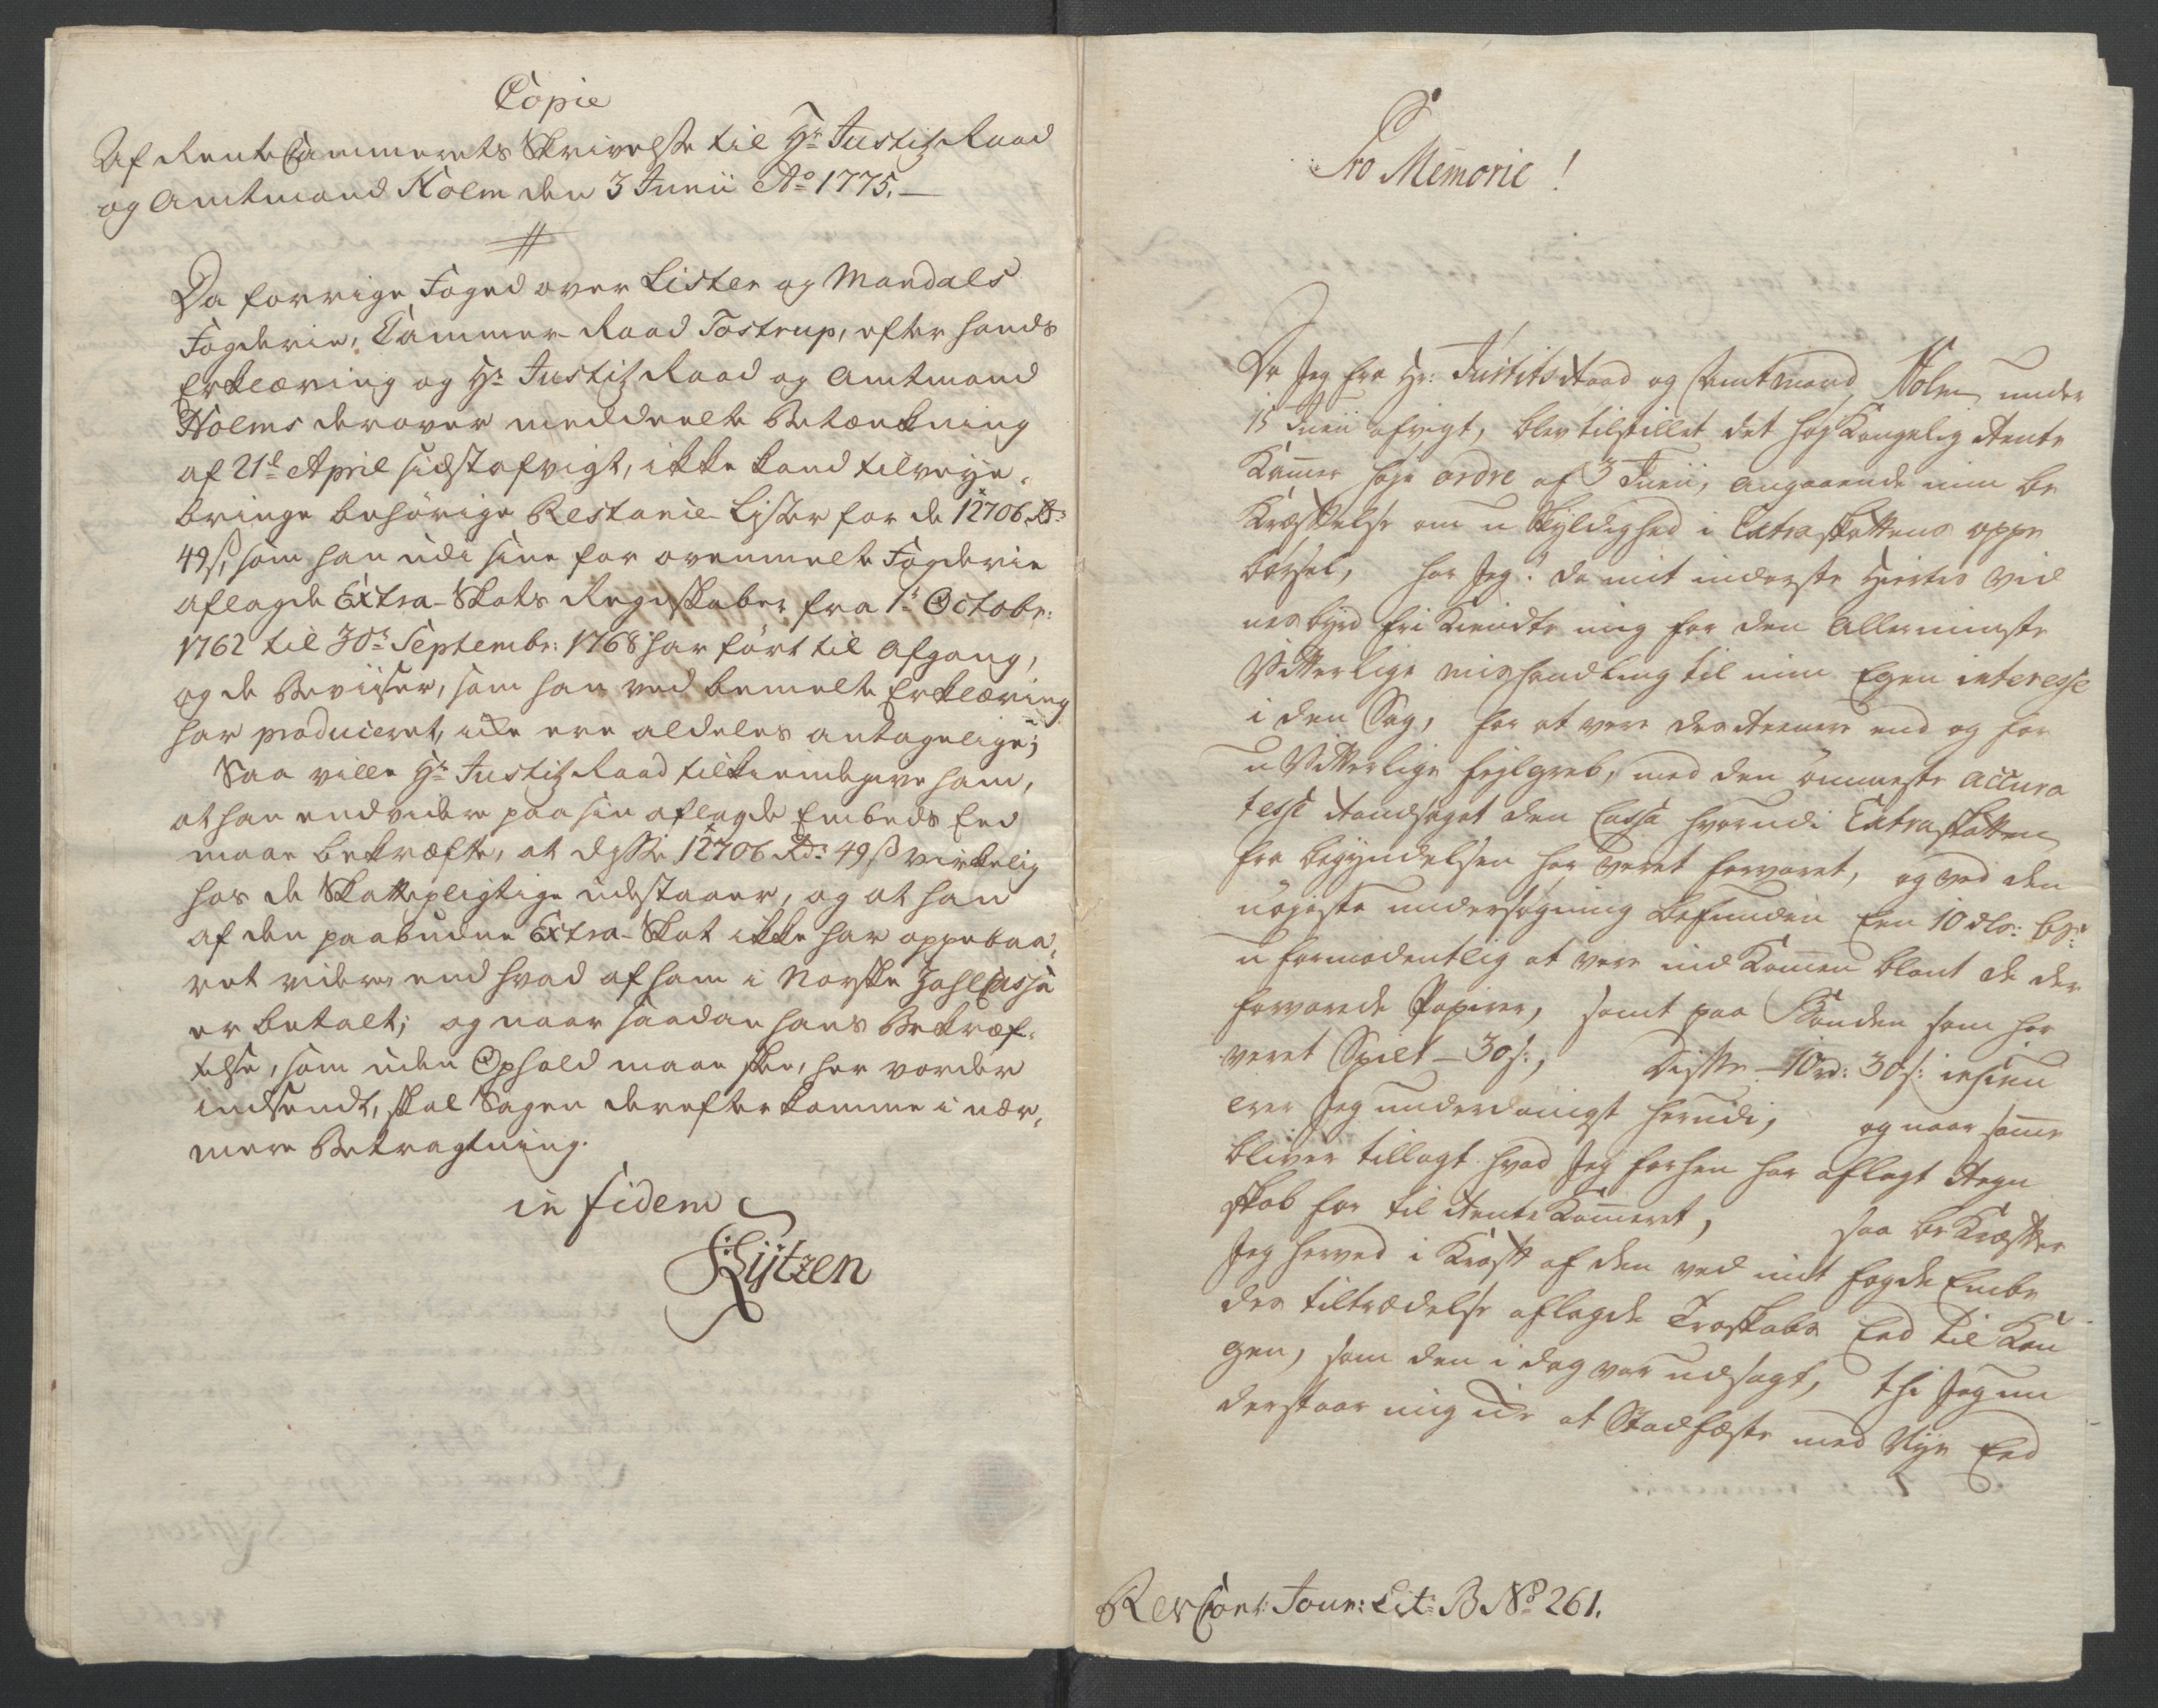 Copie
Af RenteCammerets Skrivelse til Hr Justitz Raad
og Amtmand Holm den 3 Junii Ao 1775.
Da forrige Foged over Lister og Mandals
Fogderie, Cammer-Raad Tostrup, efter hands
Erklæring og Hr Justitz Raad og Amtmand
Holms derover meddeelte Betænkning
af 21de April sidstafvigt, ikke kand tilveye-
bringe behørige Restance Lister for de 12706 Rdr
49 s, som han udi sine for ovenmelte Fogderie
aflagde Extra-Skats Regnskaber fra 1te Octobr:
1762 til 30te Septembr: 1768 har ført til Afgang,
og de Beviiser, som han ved bemelte Erklæring
har produceret, icke ere aldeles antagelige;
Saa ville Hr Justitz Raad tilkiendegive ham,
at han endvidere paa sin aflagde Embeds Eed
maae bekræfte, at disse 12706 Rdr 49 s virkelig
hos de Skattepligtige udestaaer, og at han
af den paabudne Extra-Skat ikke har oppebaa-
ret videre, end hvad af ham i Norske ZahlCassa
er betalt; og naar saadan hans Bekræf-
telse, som uden Ophold maae skee, her vorder
indsendt, skal Sagen derefter komme i nær-
mere Betragtning.
in fidem
Kijtzen
Pro Memorie!
Da Jeg fra Hr: Justitsraad og Amtmand Holm under
15 Junii afvigt, blev tilstillet det høy Kongelig Rente
Kammer høye ordre af 3 Junii, angaaende min be
kræftelse om uskyldighed i Extraskattens oppe
børsel, har Jeg: da mit inderste Hiertes vid
nesbyrd fri kiendte mig for den allermindste
vitterlige mishandling til min Egen interesse
i den Sag, for at være des reenere end og for
u vitterlige feylgreb, med den ömmeste accura
tesse Randsaget den Cassa hvorudi Extraskatten
fra begyndelsen har været forvaret, og ved den
nöyeste undersøgning befunden Een 10 dlr: bs:
u formodentlig at være ind kommen blant de der
forvarede Papirer, samt paa Bonden som har
været Spilt - 30 s:, Disse - 10 rd: 30 s: insinu
erer Jeg underdanigst herudi, og naar samme
bliver tillagt hvad Jeg forhen har aflagt Regn
skab for til RenteKammeret, saa bekræfter
Jeg herved i Kraft af den ved mit fogde Embe
des tiltrædelse aflagde Troskabs Eed til Kon
gen, som den i dag var udsagt, thi Jeg un
derstaar mig icke at Stadfæste med Nye Eed
Rev Cont: Jour: Lit: B No 261.